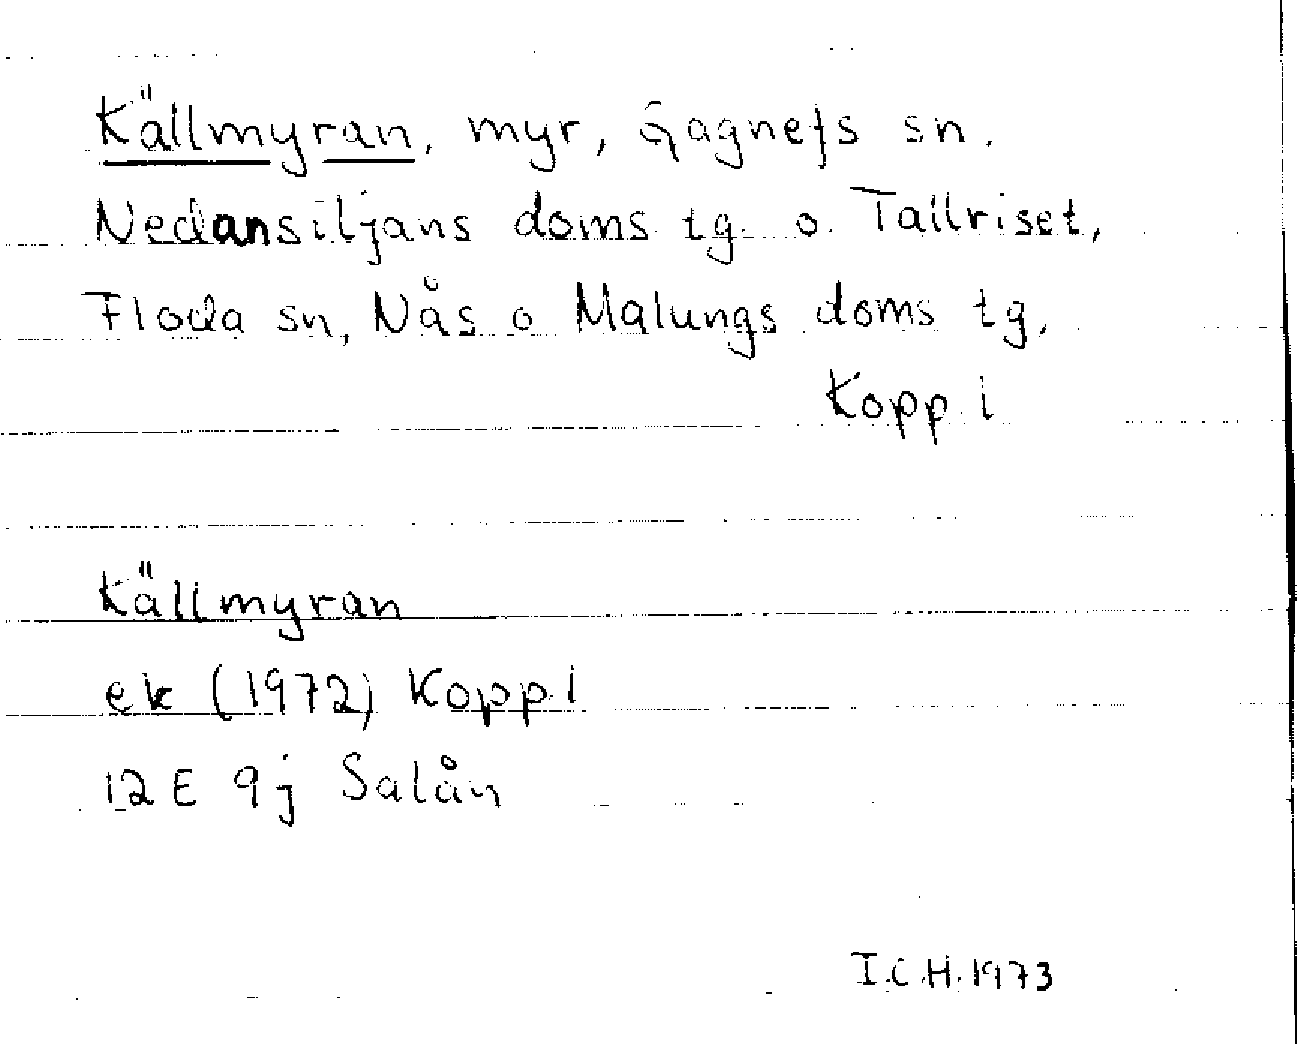 Källmyran, myr, Gagnefs sn.
Nedansiljans doms tg. o. Tallriset,
Floda sn, Nås o Malungs doms tg,
Kopp. l
Källmyran
ek (1972) Kopp. l
12 E 9j Salån
I.C.H. 1973